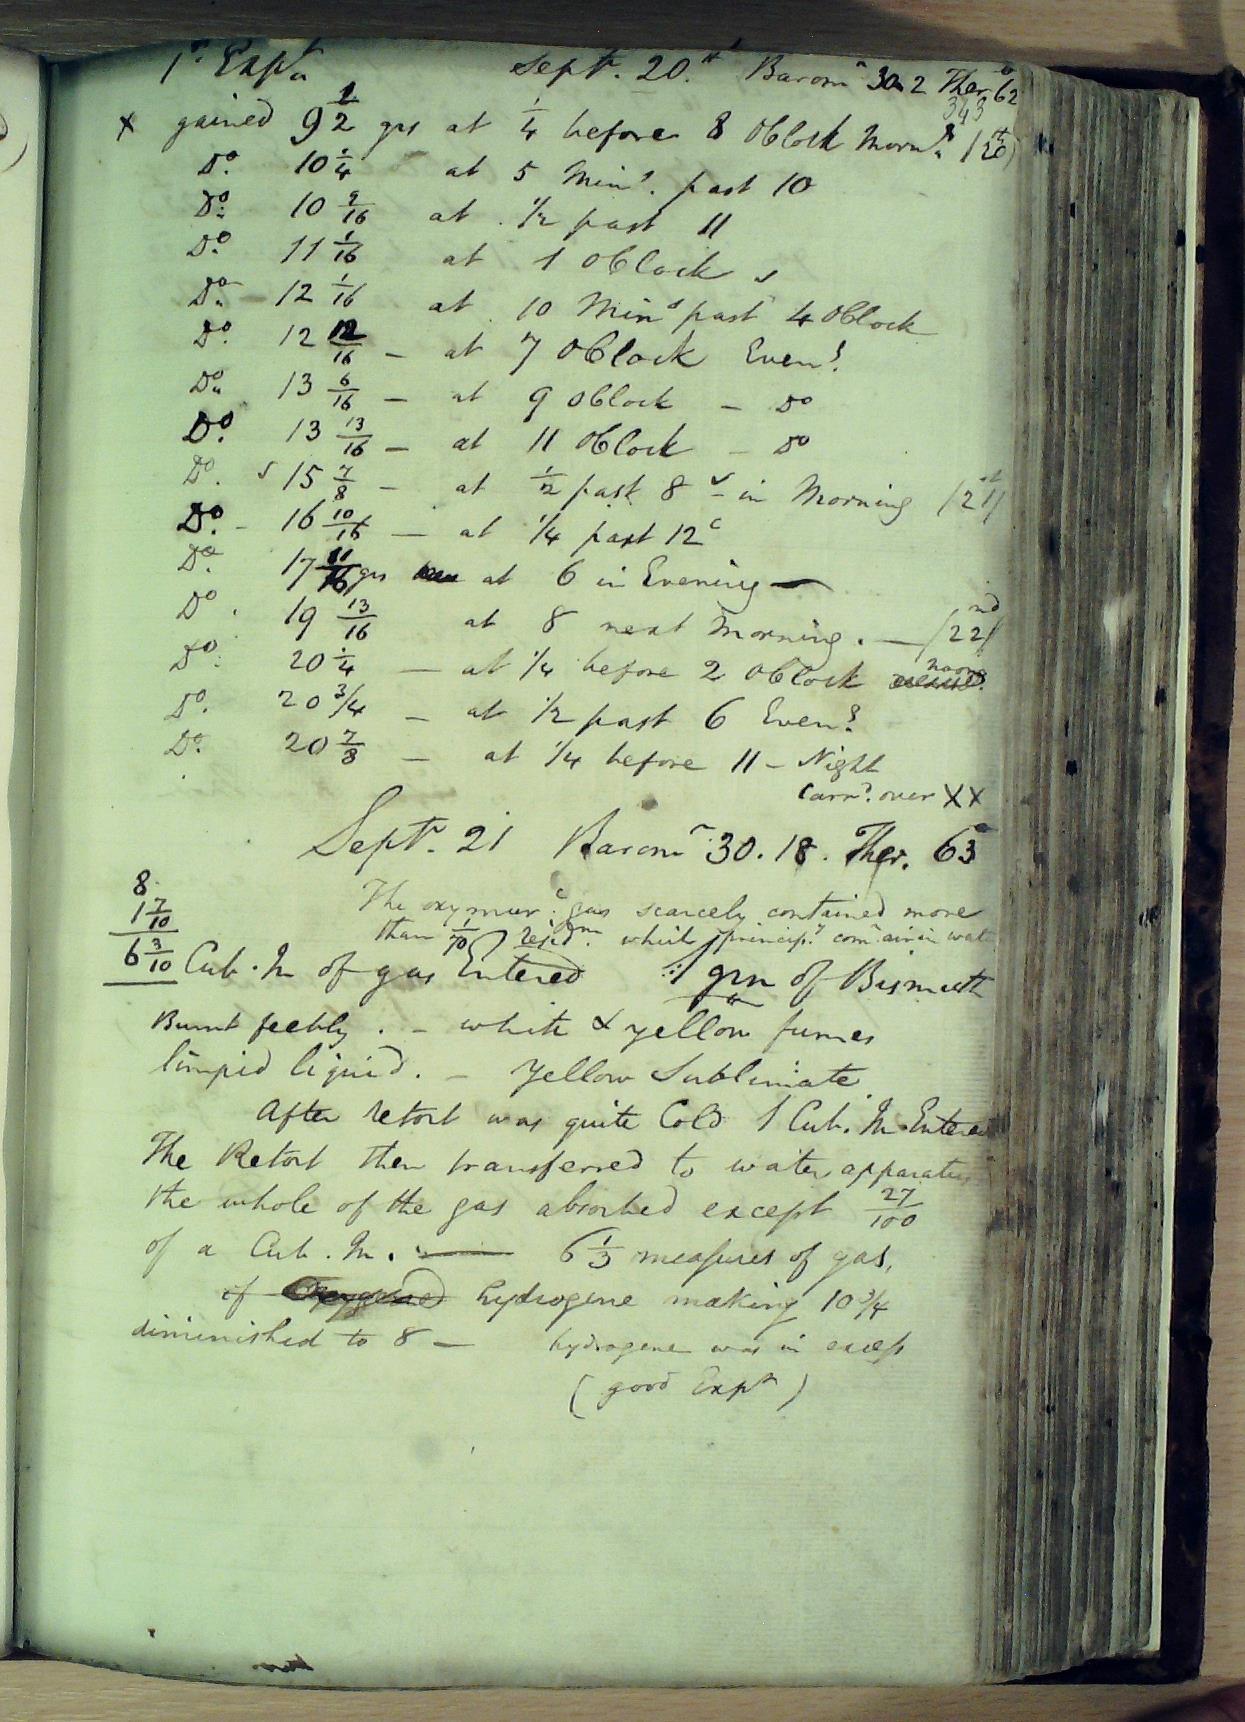 1st Expt. Sept. 20.th Baromr 30.2 Ther. 62°
343
x gained 9 1/2 grs at 1/4 before 8 OClock Morng. (20th)
Do. 10 1/4 at 5 Mins. past 10
Do. 10 9/16 at 1/2 past 11
Do. 11 1/16 at 1 OClock
Do. - 12 1/16 at 10 Mins past 4 OClock
Do. 12 12/16 - at 7 OClock Eveng.
Do. 13 6/16 - at 9 OClock - Do
Do. 13 13/16 - at 11 OClock - Do
Do. 15 7/8 - at 1/2 past 8 - in Morning (21st)
Do. - 16 10/16 - at 1/4 past 12
Do. 17 11/16 grs at 6 in Evening —
Do. 19 13/16 at 8 next Morning. — (22nd)
Do. 20 1/4 - at 1/4 before 2 OClock noon
Do. 20 3/4 - at 1/2 past 6 Eveng.
Do. 20 7/8 - at 1/4 before 11 - Night
Carrd. over XX
Septr. 21 Baromr 30.18. Ther. 63
8
1 7/10
The oxymurc. gas scarcely contained more
than 1/10 residm. which principy. comn. air in water
6 3/10 Cub. In of gas Entered 1 grn of Bismuth
Burnt feebly. - white & yellow fumes
limpid liquid. - Yellow Sublimate
After retort was quite Cold 1 Cub. In. Entered
The Retort then transferred to water apparatus
the whole of the gas absorbed except 27/100
of a Cub. In. — 6 1/3 measures of gas,
of Oxygene hydrogene making 10 3/4
diminished to 8 - hydrogene was in excess
(good Expt)